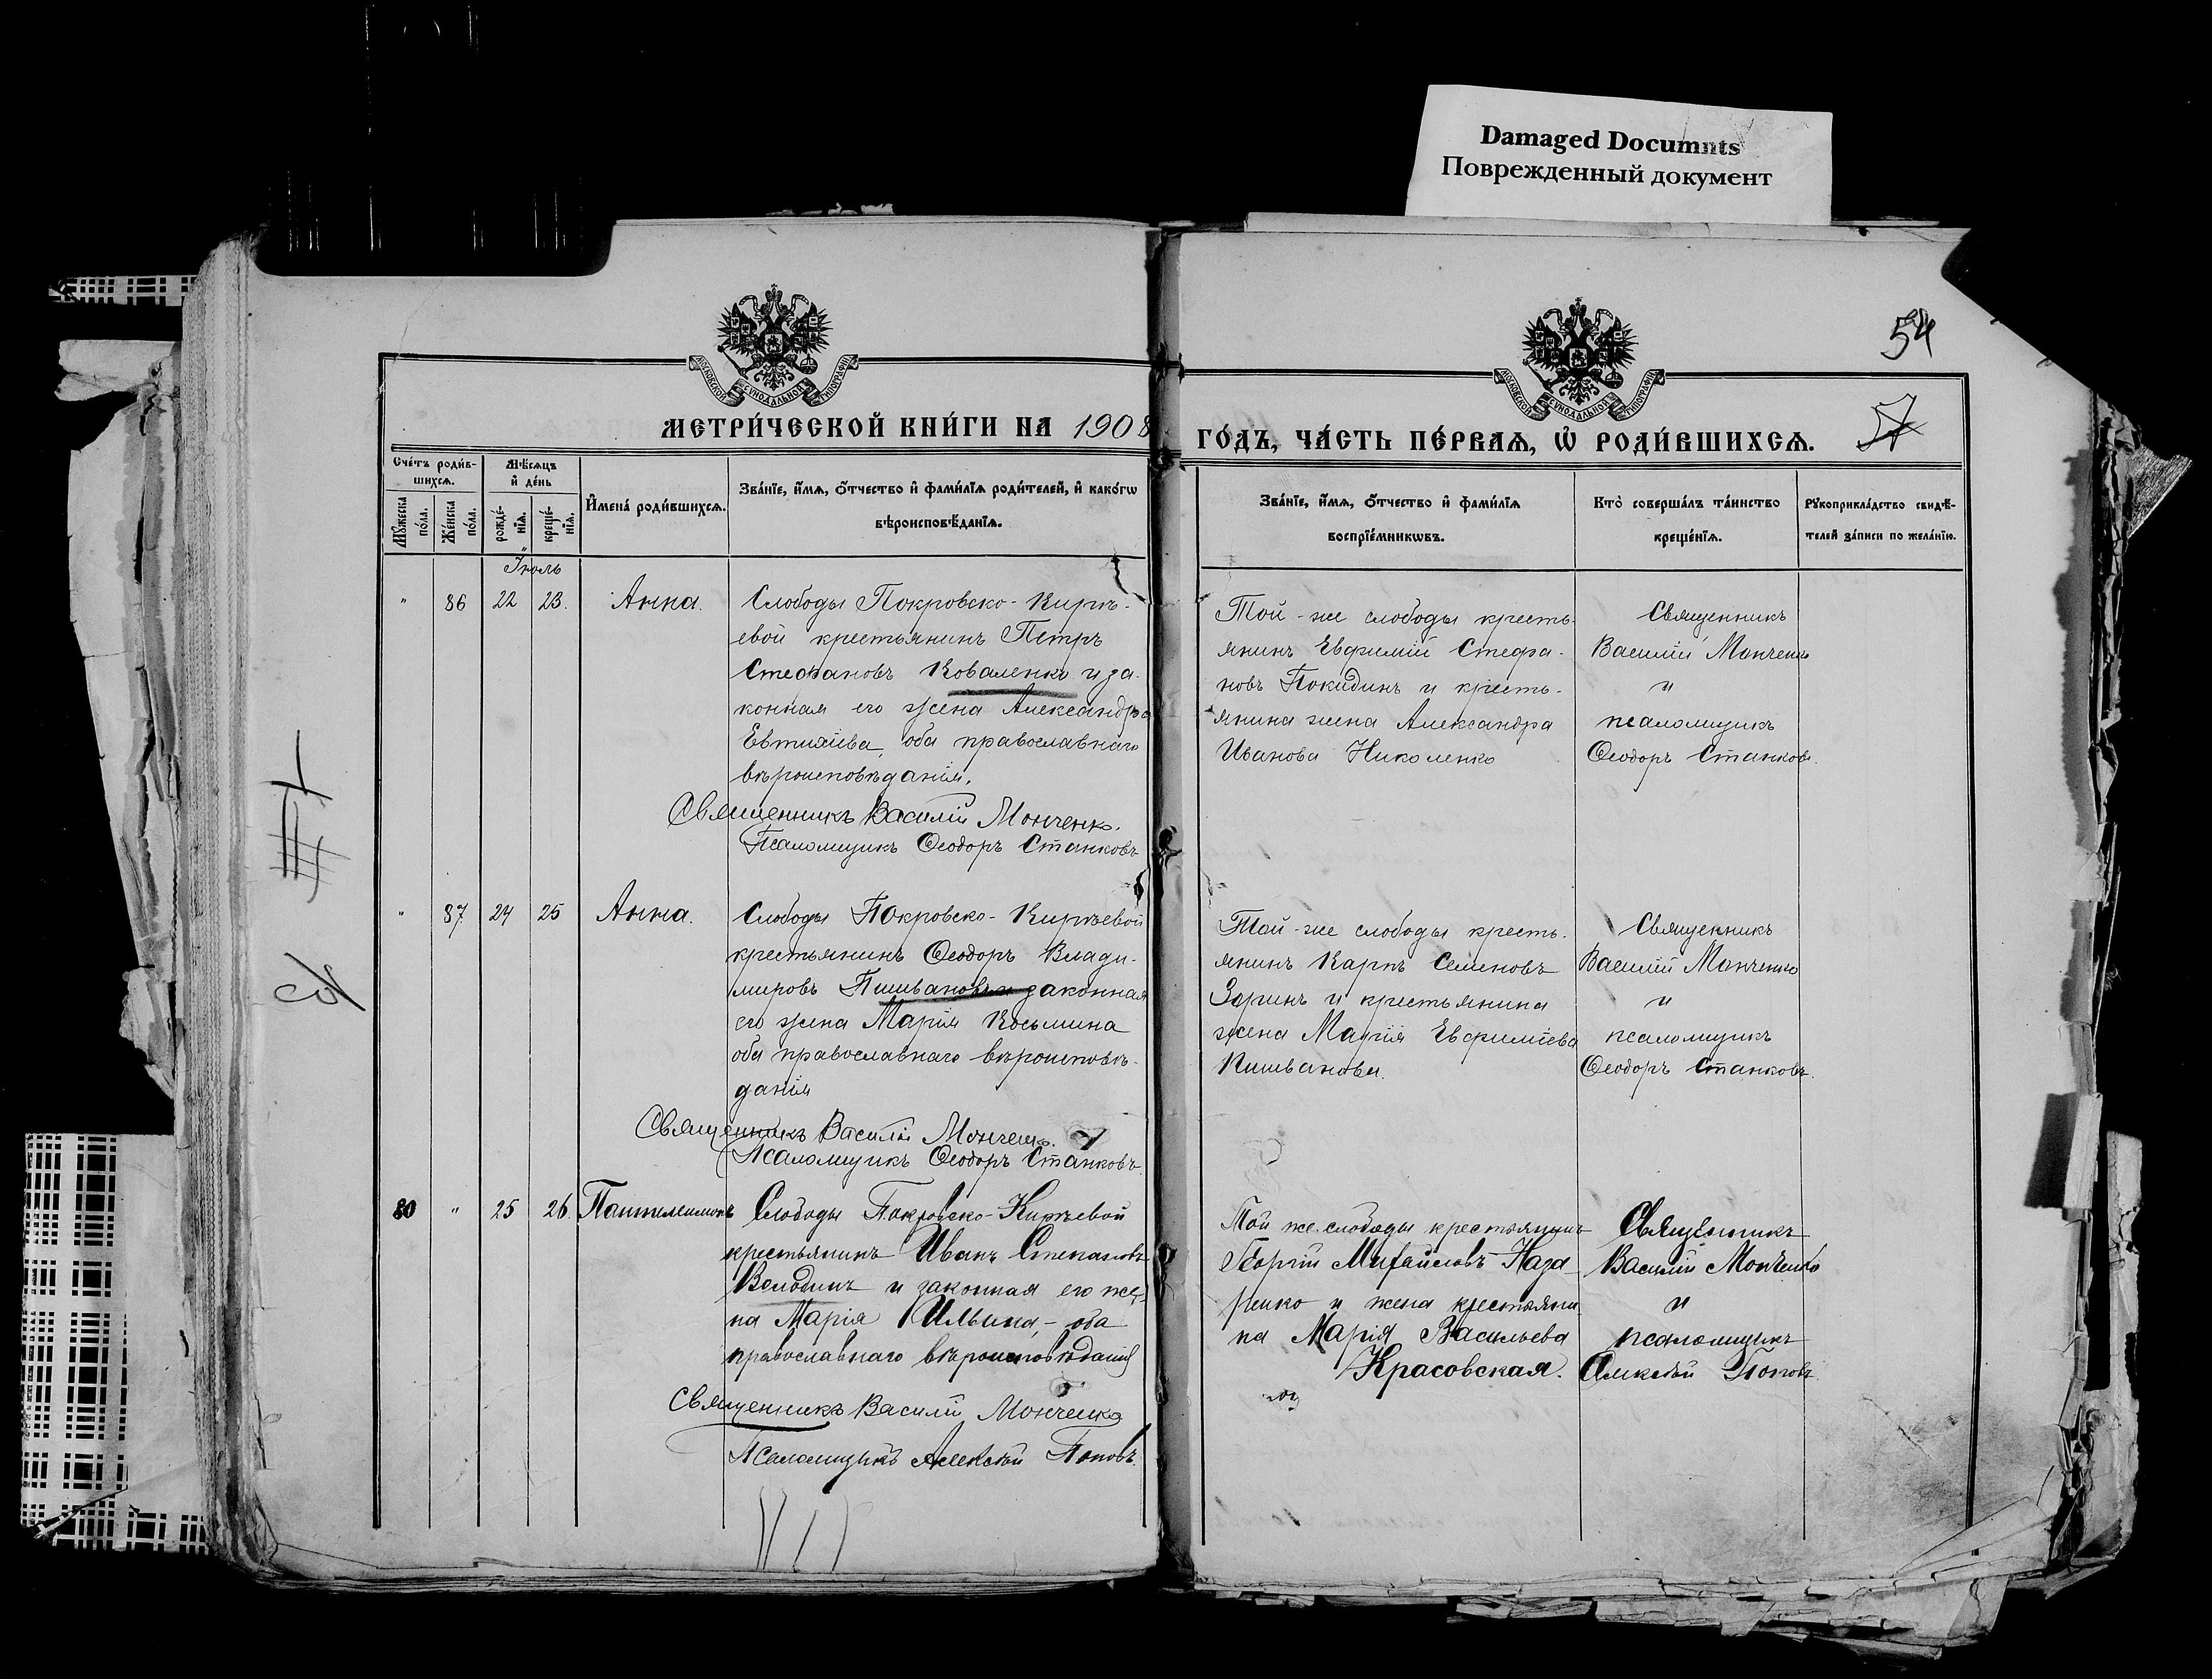 Damaged Documnts
Поврежденный документ
54
МОСКОВСКОЙ СѴНОДАЛЬНОЙ ТИПОГРАФІИ
МОСКОВСКОЙ СѴНОДАЛЬНОЙ ТИПОГРАФІИ
МЕТРИ́ЧЕСКОЙ КНИ́ГИ НА 1908
ГО́ДЪ, ЧА́СТЬ ПЕ́РВАѦ, Ѡ҆ РОДИ́ВШИХСѦ.
Сче́тъ роди́в-
шихсѧ.
Мꙋ́жеска по́ла.
Же́нска по́ла.
Мѣ́сѧцъ
и҆ де́нь
рожде́-
нїѧ.
креще́-
нїѧ.
И҆мена̀ роди́вшихсѧ.
Зва́нїе, и҆́мѧ, ѻ҆́тчество и҆ фами́лїѧ роди́телей, и҆ како́гѡ
вѣроисповѣ́данїѧ.
Зва́нїе, и҆́мѧ, ѻ҆́тчество и҆ фами́лїѧ
воспрїе́мникѡвъ.
Кто̀ соверша́лъ та́инство
креще́нїѧ.
Рꙋкоприкла́дство свидѣ́-
телей за́писи по жела́нїю.
Іюль
" 86 22 23. Анна.
Слободы Покровско-Кирѣ-
евой крестьянинъ Петръ
Стефановъ Коваленко и за-
конная его жена Александра
Евтихіева, оба православнаго
вѣроисповѣданія.
Священникъ Василій Монченко.
Псаломщикъ Ѳеодоръ Станковъ
Той-же слободы кресть-
янинъ Евфимій Стефа-
новъ Покидинъ и кресть-
янина жена Александра
Иванова Николенко
Священникъ
Василій Монченко
и
псаломщикъ
Ѳеодоръ Станковъ.
" 87 24 25 Анна.
Слободы Покровско-Кирѣевой
крестьянинъ Ѳеодоръ Влади-
міровъ и законная
его жена Марія Косьмина
оба православнаго вѣроисповѣ-
данія
Священникъ Василій Монченко.
Псаломщикъ Ѳеодоръ Станковъ.
Той-же слободы кресть-
янинъ Карпъ Семеновъ
Зоринъ и крестьянина
жена Марія Евфиміева
Священникъ
Василій Монченко
и
псаломщикъ
Ѳеодоръ Станковъ.
80 " 25 26. Пантелеимонъ
Слободы Покровско-Кирѣевой
крестьянинъ Иванъ Степановъ
Володинъ и законная его же-
на Марія Ильина, - оба
православнаго вѣроисповѣданія
Священникъ Василій Монченко
Псаломщикъ Алексѣй Поповъ.
Той же слободы крестьянинъ
Георгій Михайловъ Наза
ренко и жена крестьяни
на Марія Васильева
Красовская.
Священникъ
Василій Монченко
и
псаломщикъ
Алексѣй Поповъ.